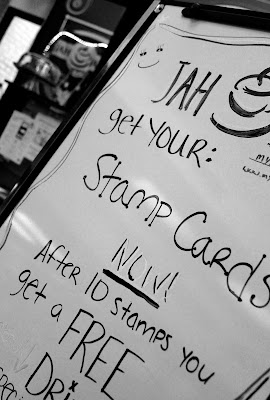 JAH
get YOUR:
Stamp Cards
NOW!
After 10 stamps you
get a FREE